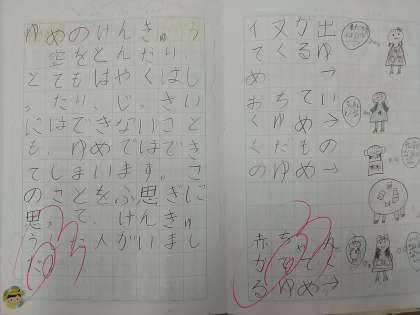 ゆめのけんきゅう
空をとんだり、
とてもはやくはし
ったり、じっさい
にはできないこと
も、ゆめではでき
てしまいます。こ
のことをふ思ぎに
思って、けんきゅ
うした人がいまし
た。
イヌが出
てくるゆ
め →
おちてい
くゆめ→
くだもの
のゆめ→
赤ちゃん
がでてく
るゆめ→